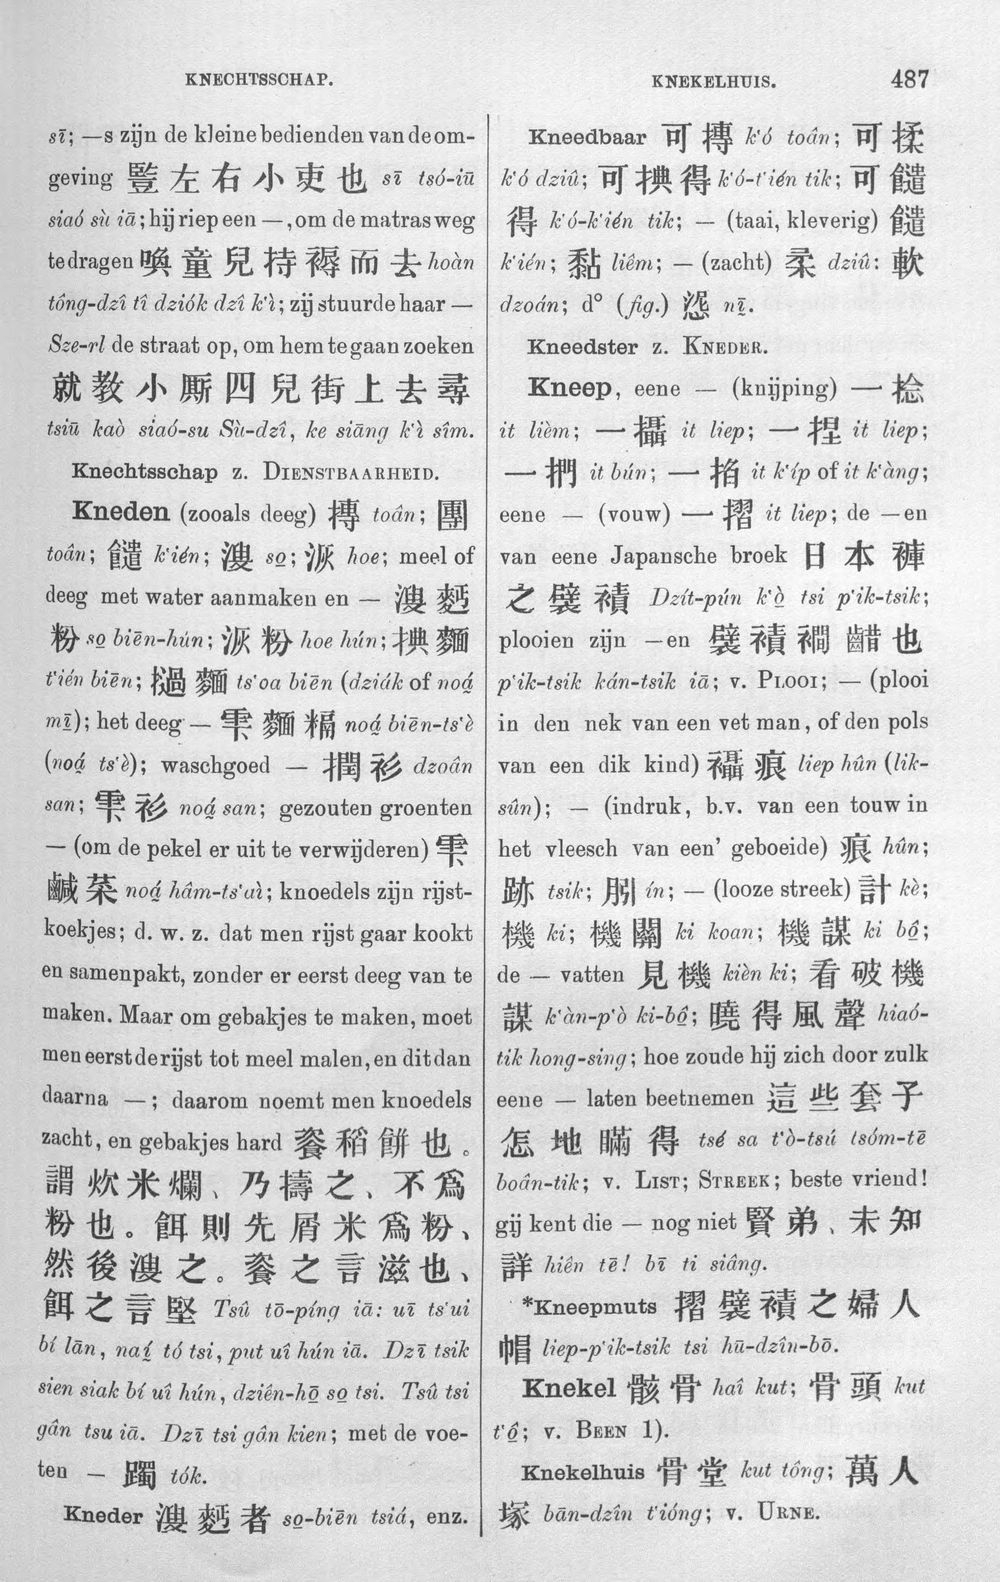 KNECHTSSCHAP.
KNEKELHUIS. 487
sī; —s zijn de kleine bedienden van de om-
geving 豎左右小吏也 sī tsó-iū
siaó sù iā; hij riep een —, om de matras weg
te dragen 喚童兒持褥而去 hoàn
tông-dzî tî dziók dzî k‘ì; zij stuurde haar —
Sze-rl de straat op, om hem te gaan zoeken
就教小厮四兒街上去尋
tsiū kaò siaó-su Sù-dzî, ke siāng k‘ì sîm.
Knechtsschap z. DIENSTBAARHEID.
Kneden (zooals deeg) 摶 toân; 團
toân; 饘 k‘ién; 溲 so̱; 洃 hoe; meel of
deeg met water aanmaken en — 溲麪
粉 so̱ biēn-hún; 洃粉 hoe hún; 捵麵
t‘ién biēn; 撾麵 ts‘oa biēn (dziák of noá̱
mī̱); het deeg — 雫麵糈 noá̱ biēn-ts‘è
(noá̱ ts‘è); waschgoed — 撋衫 dzoân
san; 雫衫 noá̱ san; gezouten groenten
— (om de pekel er uit te verwijderen) 雫
鹹菜 noá̱ hâm-ts‘aì; knoedels zijn rijst-
koekjes; d. w. z. dat men rijst gaar kookt
en samenpakt, zonder er eerst deeg van te
maken. Maar om gebakjes te maken, moet
men eerst de rijst tot meel malen, en dit dan
daarna —; daarom noemt men knoedels
zacht, en gebakjes hard 餈稻餅也。
謂炊米爛、乃擣之、不爲
粉也。餌則先屑米爲粉、
然後溲之。餈之言滋也、
餌之言堅 Tsû tō-píng iā: uī ts‘ui
bí lān, naí̱ tó tsi, put uî hún iā. Dzī tsik
sien siak bí uî hún, dziên-hō̱ so̱ tsi. Tsû tsi
gân tsu iā. Dzī tsi gân kien; met de voe-
ten — 躅 tók.
Kneder 溲麪者 so̱-biēn tsiá, enz.
Kneedbaar 可摶 k‘ó toân; 可揉
k‘ó dziû; 可捵得 k‘ó-t‘ién tik; 可饘
得 k‘ó-k‘ién tik; — (taai, kleverig) 饘
k‘ién; 黏 liêm; — (zacht) 柔 dziû: 軟
dzoán; d° (fig.) 惉 nī̱.
Kneedster z. KNEDER.
Kneep, eene — (knijping) 一捻
it lièm; 一攝 it liep; 一捏 it liep;
一捫 it bún; 一掐 it k‘íp of it k‘àng;
eene — (vouw) 一摺 it liep; de —en
van eene Japansche broek 日本褲
之襞襀 Dzít-pún k‘ò̱ tsi p‘ik-tsik;
plooien zijn —en 襞襀襉齰也
p‘ik-tsik kán-tsik iā; v. PLOOI; — (plooi
in den nek van een vet man, of den pols
van een dik kind) 襵痕 liep hûn (lik-
sûn); — (indruk, b.v. van een touw in
het vleesch van een’ geboeide) 痕 hûn;
跡 tsik; 䏖 ín; — (looze streek) 計 kè;
機 ki; 機關 ki koan; 機謀 ki bô̱;
de — vatten 見機 kièn ki; 看破機
謀 k‘àn-p‘ò ki-bô̱; 曉得風聲 hiaó-
tik hong-sing; hoe zoude hij zich door zulk
eene — laten beetnemen 這些套子
怎地瞞得 tsé sa t‘ò-tsú tsóm-tē
boân-tik; v. LIST; STREEK; beste vriend!
gij kent die — nog niet 賢弟、未知
詳 hiên tē! bī ti siâng.
*Kneepmuts 摺襞襀之婦人
帽 liep-p‘ik-tsik tsi hū-dzîn-bō.
Knekel 骸骨 haî kut; 骨頭 kut
t‘ô̱; v. BEEN 1).
Knekelhuis 骨堂 kut tông; 萬人
塚 bān-dzîn t‘ióng; v. URNE.